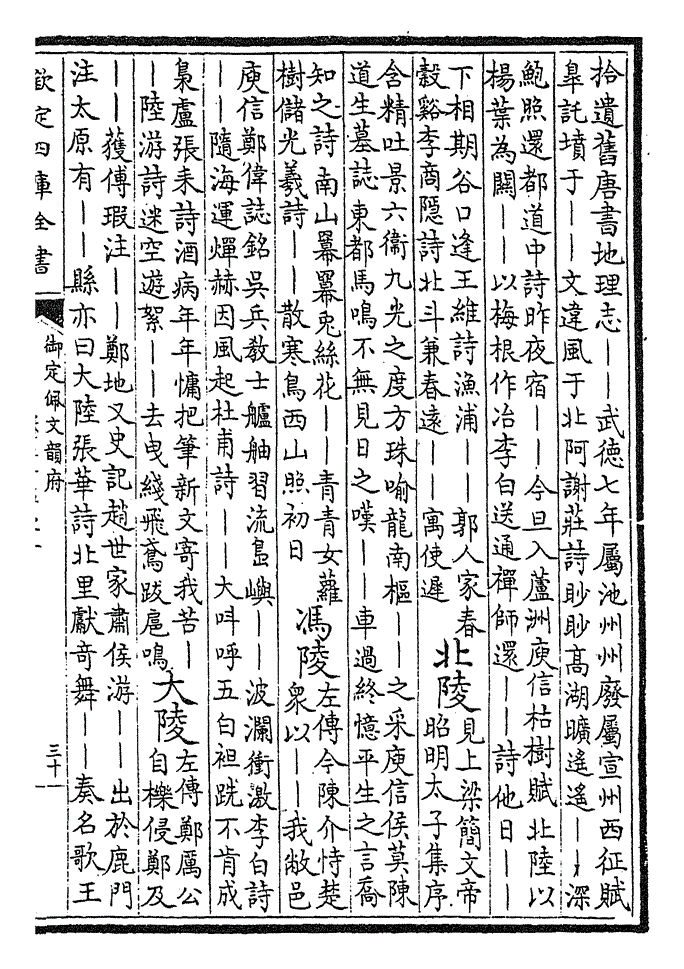 拾遺舊唐書地理志——武德七年屬池州州廢屬宣州西征賦
臯託墳于——文違風于北阿謝莊詩眇眇髙湖曠遥遥——深
鮑照還都道中詩昨夜宿——今旦入蘆洲庾信枯樹賦北陸以
楊葉為關——以梅根作冶李白送通禪師還——詩他日——
下相期谷口逢王維詩漁浦——郭人家春
穀谿李商隠詩北斗兼春逺——寓使遲
北陵
見上梁簡文帝
昭明太子集序
含精吐景六衞九光之度方珠喻龍南樞——之采庾信侯莫陳
道生墓誌東都馬鳴不無見日之嘆——車過終憶平生之言喬
知之詩南山羃羃兎絲花——青青女蘿
樹儲光羲詩——散寒鳥西山照初日
馮陵
左傳今陳介恃楚
衆以——我敝邑
庾信鄭偉誌銘吳兵敎士艫舳習流島嶼——波瀾衝激李白詩
——隨海運燀赫因風起杜甫詩——大呌呼五白袒跣不肯成
梟盧張耒詩酒病年年慵把筆新文寄我苦—
—陸游詩迷空遊絮——去曳綫飛鳶跋扈鳴
大陵
左傳鄭厲公
自櫟侵鄭及
——獲傅瑕注——鄭地又史記趙世家肅侯游——出於鹿門
注太原有——縣亦曰大陸張華詩北里獻奇舞——奏名歌王
欽定四庫全書
御定佩文韻府
三十一